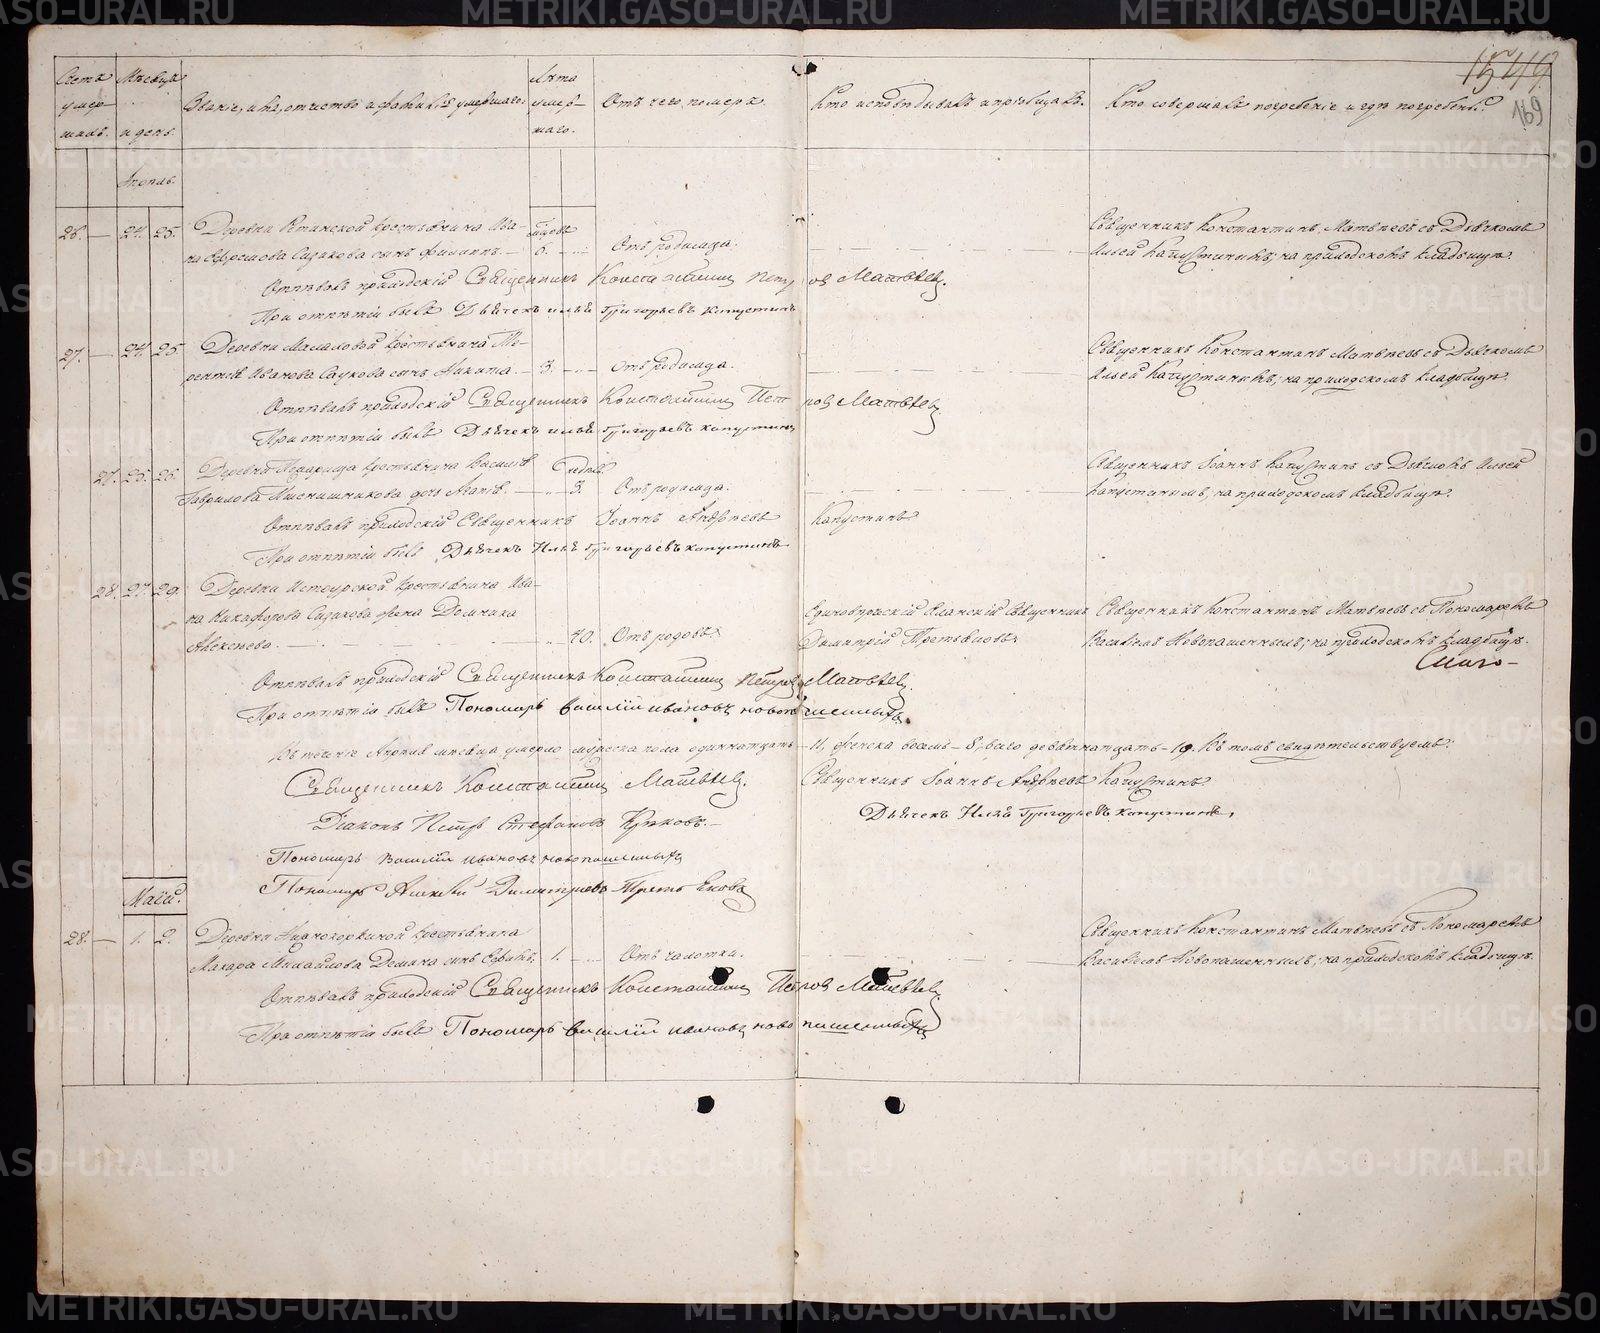 METRIKI.GASO-URAL.RU
1549.
169
Счетъ умер- шихъ.
Мѣсяцъ и день.
Званіе, имя, отчество и фамилія умершаго.
Лѣта умер- шаго.
Отъ чего померъ.
Кто исповѣдывалъ и пріобщалъ.
Кто совершалъ погребеніе и гдѣ погребены.
Апрѣль.
26. — 24. 25.
Деревни крестьянина Ива-
на Ефремова сынъ Филиппъ. —
6.
Отъ родимца.
Священникъ Константинъ Матвѣевъ съ Дьячкомъ
Ильей Капустинымъ, на приходскомъ кладбищѣ.
Отпѣвалъ приходскій Священникъ Константинъ Петровъ Матвѣевъ.
При отпѣтіи былъ Дьячекъ Илья Григорьевъ Капустинъ
27. — 24. 25.
Деревни крестьянина
Иванова сынъ Никита. — 3.
Отъ родимца.
Священникъ Константинъ Матвѣевъ съ Дьячкомъ
Ильей Капустинымъ, на приходскомъ кладбищѣ.
Отпѣвалъ приходскій Священникъ Константинъ Петровъ Матвѣевъ.
При отпѣтіи былъ Дьячекъ Илья Григорьевъ Капустинъ
27. 25. 26.
Деревни крестьянина Василія
Гаврилова дочь Агапія. — 3.
Отъ родимца.
Священникъ Іоаннъ Капустинъ съ Дьячкомъ Ильей
Капустинымъ, на приходскомъ кладбищѣ.
Отпѣвалъ приходскій Священникъ Іоаннъ Андреевъ Капустинъ
При отпѣтіи былъ Дьячекъ Илья Григорьевъ Капустинъ
28. 27. 29.
Деревни Истоурской крестьянина Ива-
на Никифорова жена Домника
Алексѣева. — 40.
Отъ родовъ.
Единовѣрческій Священникъ
Димитрій Третьяковъ
Священникъ Константинъ Матвѣевъ съ Пономаремъ
Василіемъ Новопашеннымъ, на приходскомъ кладбищѣ.
Отпѣвалъ приходскій Священникъ Константинъ Петровъ Матвѣевъ.
При отпѣтіи былъ Пономарь Василій Ивановъ Новопашенныхъ.
Въ теченіе Апрѣля мѣсяца умерло мужеска пола одиннатцать — 11, женска восемь — 8, всего девятнатцать — 19. Въ томъ свидѣтельствуемъ:
Священникъ Константинъ Матвѣевъ.
Священникъ Іоаннъ Андреевъ Капустинъ.
Діаконъ Петръ Стефановъ
Дьячекъ Илья Григорьевъ Капустинъ,
Пономарь Василій Ивановъ Новопашенныхъ
Пономарь Алексѣй Димитріевъ Третьяковъ
Маій.
28. — 1. 2.
Деревни крестьянина
Макара Михайлова сынъ Ефимъ. 1.
Отъ чахотки.
Священникъ Константинъ Матвѣевъ съ Пономаремъ
Василіемъ Новопашеннымъ, на приходскомъ кладбищѣ.
Отпѣвалъ приходскій Священникъ Константинъ Петровъ Матвѣевъ.
При отпѣтіи былъ Пономарь Василій Ивановъ Новопашенныхъ